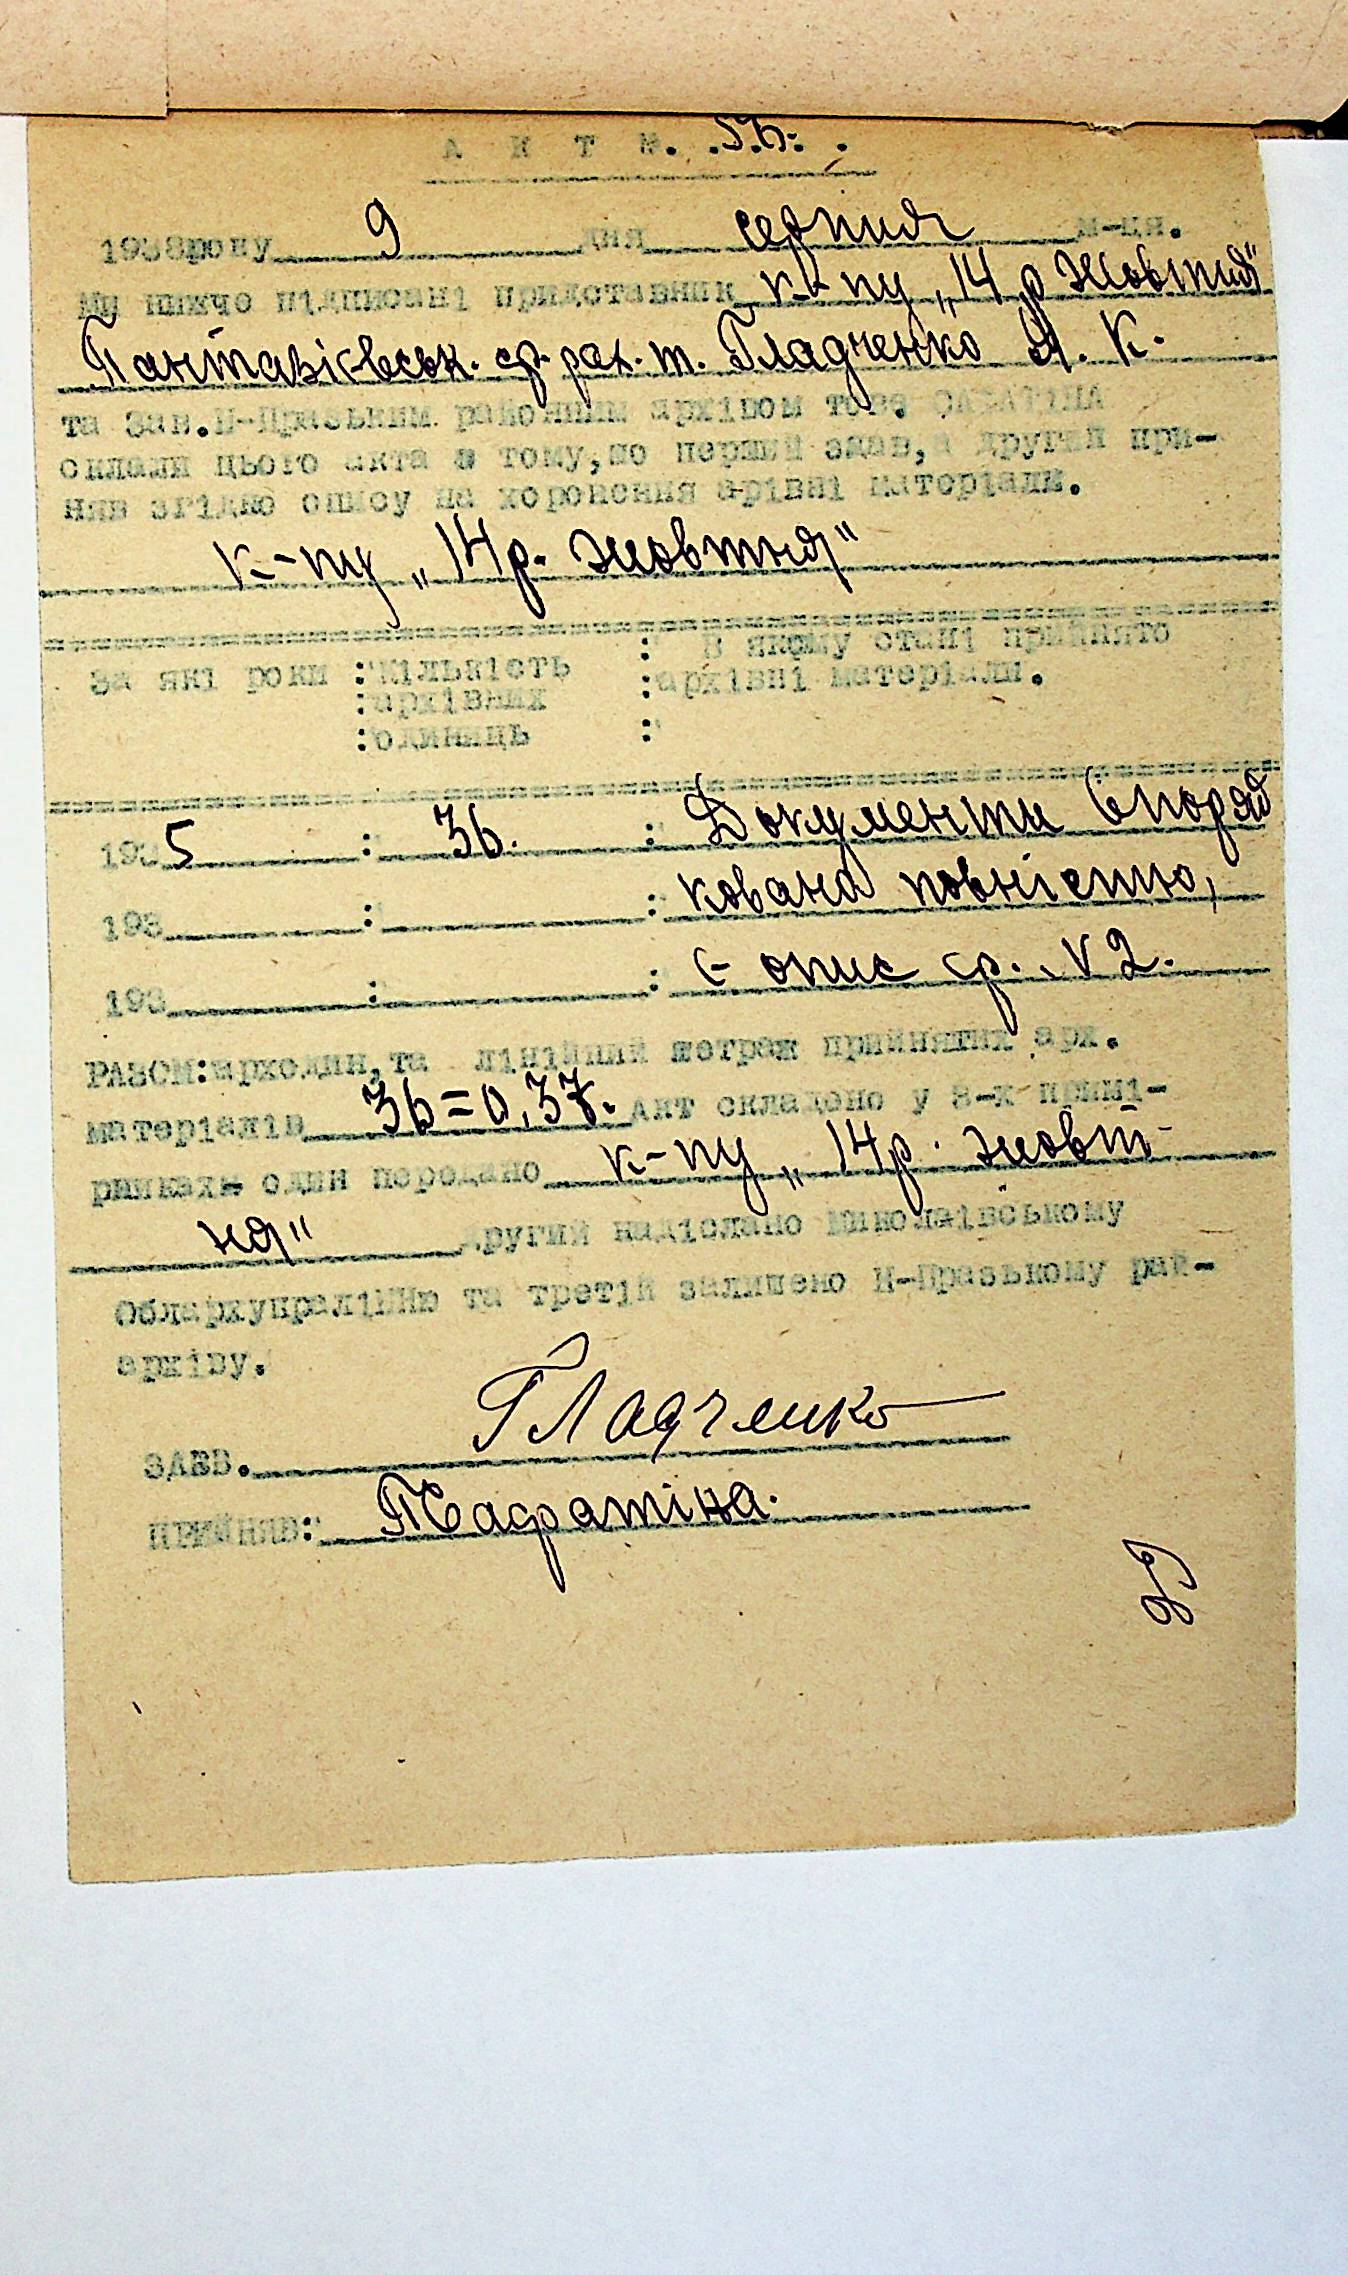 А К Т №.
1938року 9 дня серпня м-ця.
Ми нижче підписані придставник к-пу „14 р Жовтня"
ср. рах. т. Гладченко Я. К.
та Зав.Н-Празьким районним архівом тов. САФАТІНА
склали цього акта в тому, що перший здав, а другий при-
няв згідно опису на хоронення арівні матеріали.
к-пу „14р. жовтня"
За які роки : кількість : В якому стані прийнято
: архівних : архівні матеріали.
: одиниць :
1935 : 36. : Документи впоряд
193 : : кована повністю,
193 : : є опис ф. №2.
РАЗОМ: арходин, та лінійний метраж прийнятих арх.
матеріалів 36=0,37. Акт складено у 3-х примі-
рниках один передано к-пу „14р. жовт-
ня" другий надіслано Миколаївському
Облархуправлінню та третій залишено Н-Празькому рай-
архіву.
ЗДАВ. Гладченко
ПРИЙНЯВ: